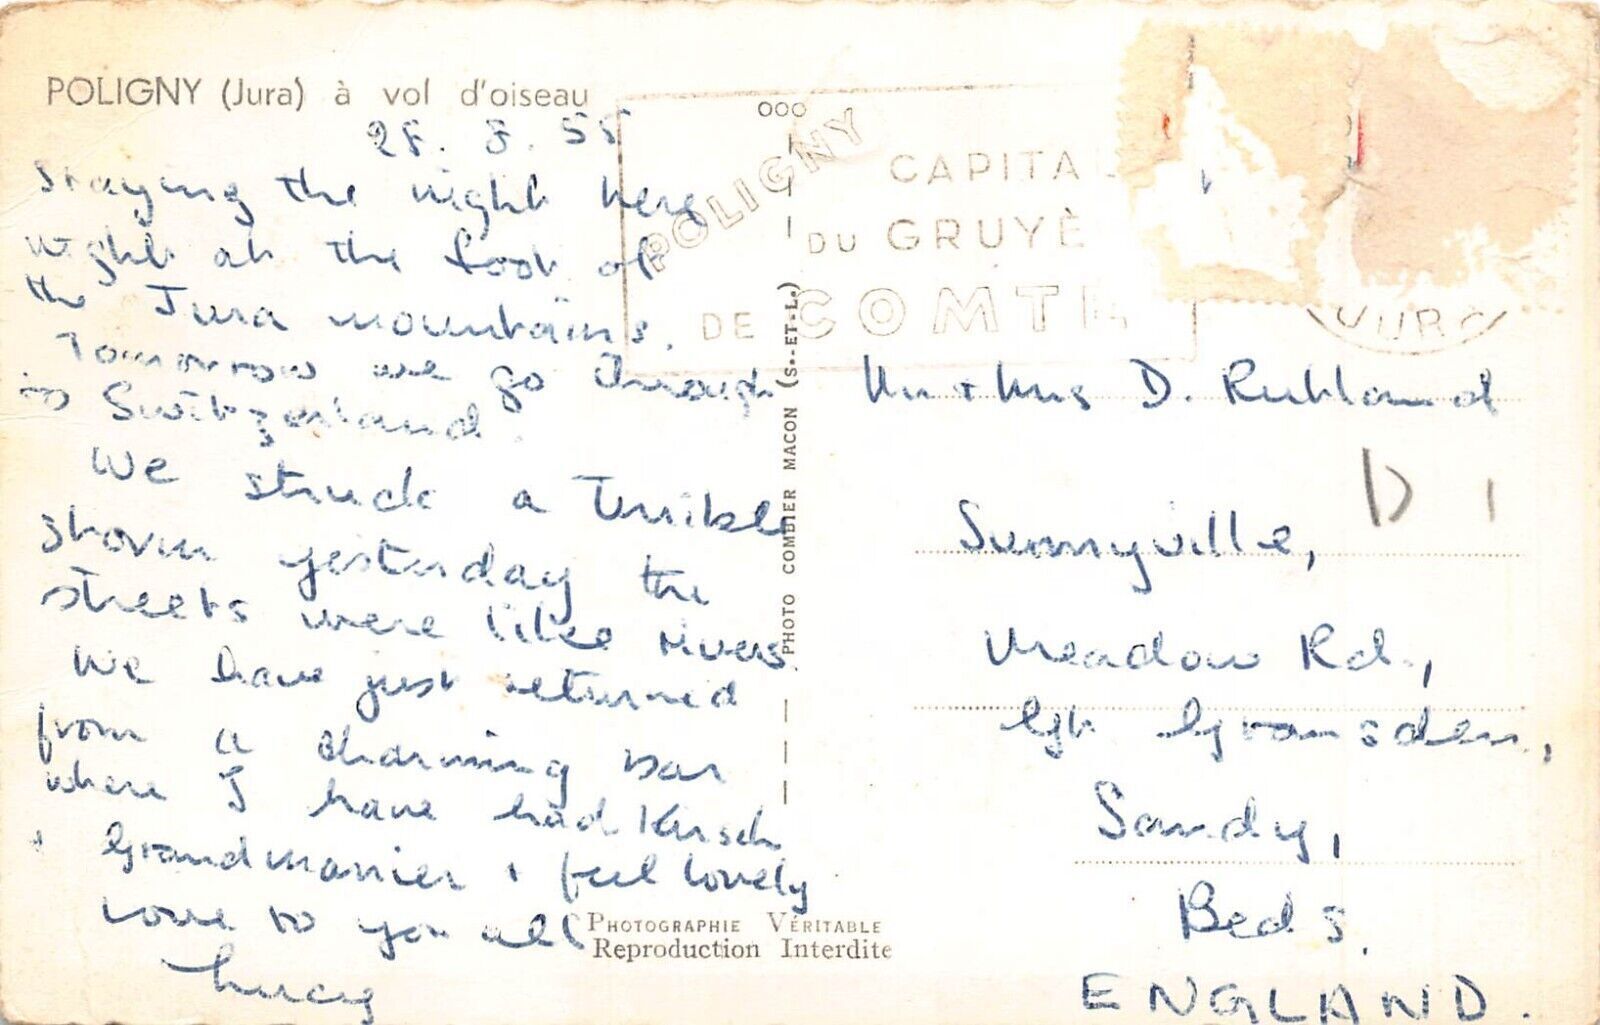 POLIGNY (Jura) à vol d'oiseau
28. 8. 55
Staying the night here
right at the foot of
the Jura mountains.
Tomorrow we go through
to Switzerland.
We struck a terrible
storm yesterday the
streets were like rivers
We have just returned
from a charming bar
where I have had Kirsch
+ Grand marnier + feel lovely
Love to you all
Lucy
PHOTO COMBIER MACON (S.-ET-L.)
PHOTOGRAPHIE VÉRITABLE
Reproduction Interdite
000
POLIGNY
CAPITA
DU GRUYÈ
DE COMTÉ
JURA
Mr + Mrs D. Ruhland
D 1
Sunnyville,
Meadow Rd.,
Gt. Gransden,
Sandy,
Beds.
ENGLAND.